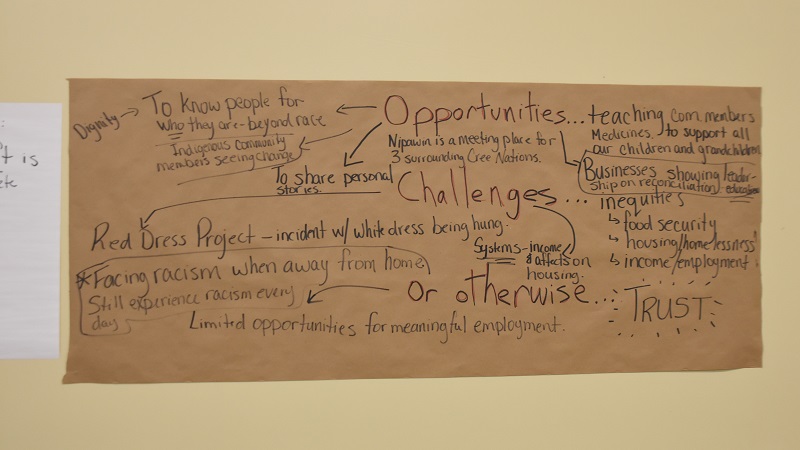 Dignity → To know people for
Who they are - beyond race
Indigenous Community
members seeing change
Opportunities...
Nipawin is a meeting place for
3 surrounding Cree Nations.
teaching com.members
Medicines. to support all
our children and grandchildren
Businesses showing leader-
ship on reconciliation education
To share personal
stories.
Challenges...
inequities
↳ food security
↳ housing/homelessness
↳ income/employment
Red Dress Project - incident w/ white dress being hung.
Systems - income
& affects on
housing.
* Facing racism when away from home,
Still experience racism every
day
Or otherwise...
TRUST
Limited opportunities for meaningful employment.
is